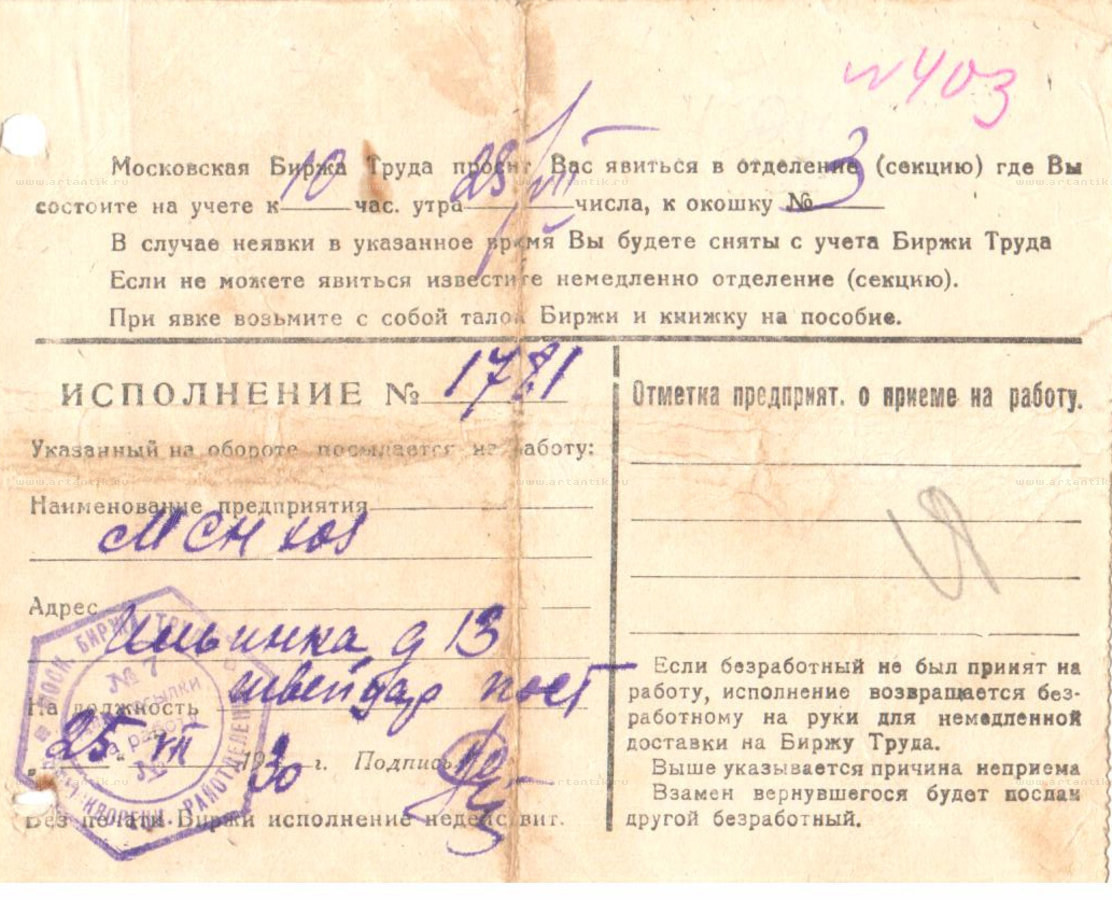 № 403
Московская Биржа Труда просит Вас явиться в отделение (секцию) где Вы
состоите на учете к 10 час. утра 25/VII числа, к окошку № 3
В случае неявки в указанное время Вы будете сняты с учета Биржи Труда
Если не можете явиться известите немедленно отделение (секцию).
При явке возьмите с собой талон Биржи и книжку на пособие.
ИСПОЛНЕНИЕ № 1781
Указанный на обороте посылается на работу:
Наименование предприятия
МСНХ
Адрес
Ильинка д 13
На должность швейцар пост
25 VII 1930 г. Подпись
Без печати Биржи исполнение недействит.
МОСК. БИРЖА ТРУДА
№ 7
на работу
Отметка предприят. о приеме на работу.
Если безработный не был принят на
работу, исполнение возвращается без-
работному на руки для немедленной
доставки на Биржу Труда.
Выше указывается причина неприема
Взамен вернувшегося будет послан
другой безработный.
www.artantik.ru